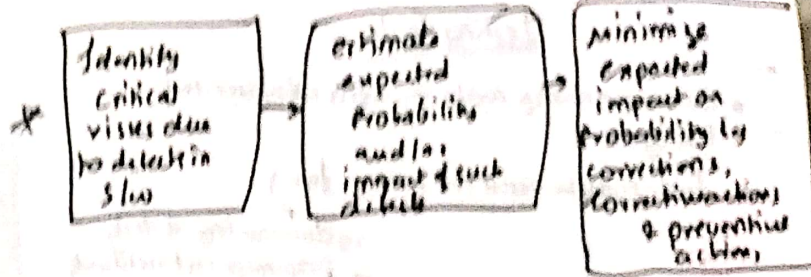 Identify
critical
risks due
to defects in
s/w
estimate
expected
probability
and/or
impact of such
defects
Minimize
expected
impact or
probability by
corrections,
corrective actions
& preventive
action,